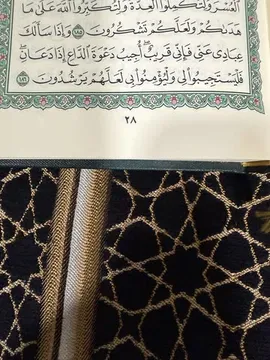 ٱلْعُسْرَ وَلِتُكْمِلُوا۟ ٱلْعِدَّةَ وَلِتُكَبِّرُوا۟ ٱللَّهَ عَلَىٰ مَا
هَدَىٰكُمْ وَلَعَلَّكُمْ تَشْكُرُونَ ١٨٥ وَإِذَا سَأَلَكَ
عِبَادِى عَنِّى فَإِنِّى قَرِيبٌ أُجِيبُ دَعْوَةَ ٱلدَّاعِ إِذَا دَعَانِ
فَلْيَسْتَجِيبُوا۟ لِى وَلْيُؤْمِنُوا۟ بِى لَعَلَّهُمْ يَرْشُدُونَ ١٨٦
٢٨